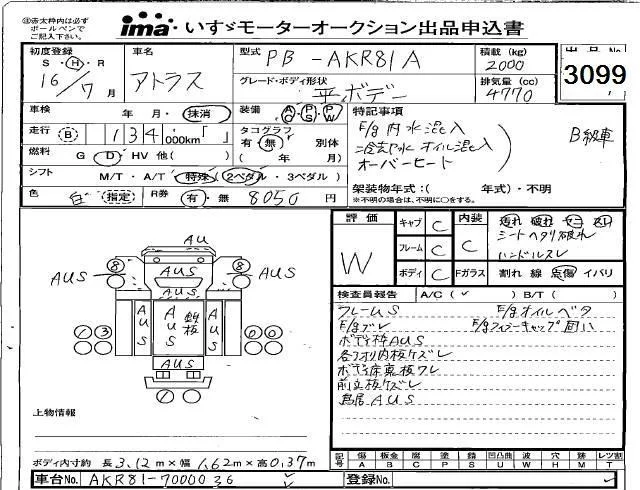 ㊟赤太枠内は必ず
ボールペンで
ご記入下さい。
ima いすゞモーターオークション出品申込書
初度登録 車名 型式 PB-AKR81A 積載 (kg) 2000 出品No.
S・H・R 16/7月 アトラス グレード・ボディ形状 平ボデー 排気量 (cc) 4770 3099
車検 年 月・抹消 装備 AC PS PW 特記事項
走行 B 134 000km「 」 タコグラフ 有・無 別体 E/g内水混入 B級車
燃料 G D HV 他( ) ( 年 月) 冷却水オイル混入
オーバーヒート
シフト M/T・A/T 特殊 (2ペダル・3ペダル) 架装物年式:( 年式)・不明
色 白 指定 R券 有・無 8050円 ※不明の場合は、不明に〇をする。
評価 キャブ C 内装 汚れ 破れ
W フレーム C C シートヘタリ破れ
ハンドルスレ
ボディ C Fガラス 割れ 線 点傷 イバリ
AU
8 AUS 8
AUS AUS AUS
AUS AUS 鉄板 AUS
1 3 0 0
AUS
検査員報告 A/C( ✓ ) B/T( )
フレームS E/gオイルベタ
E/gブレ E/gフィラーキャップ固い
ボデ枠AUS
各アオリ内板ケズレ
ボデ床東板ワレ
前立板ケズレ
鳥居AUS
上物情報
ボディ内寸約 長3.12m×幅1.62m×高0.37m
記号 傷 板金 腐 塗 錆 凹凸曲 波 穴 跡 レツ割
A B C P S U W H M T
車台No. AKR81-7000036 登録No.